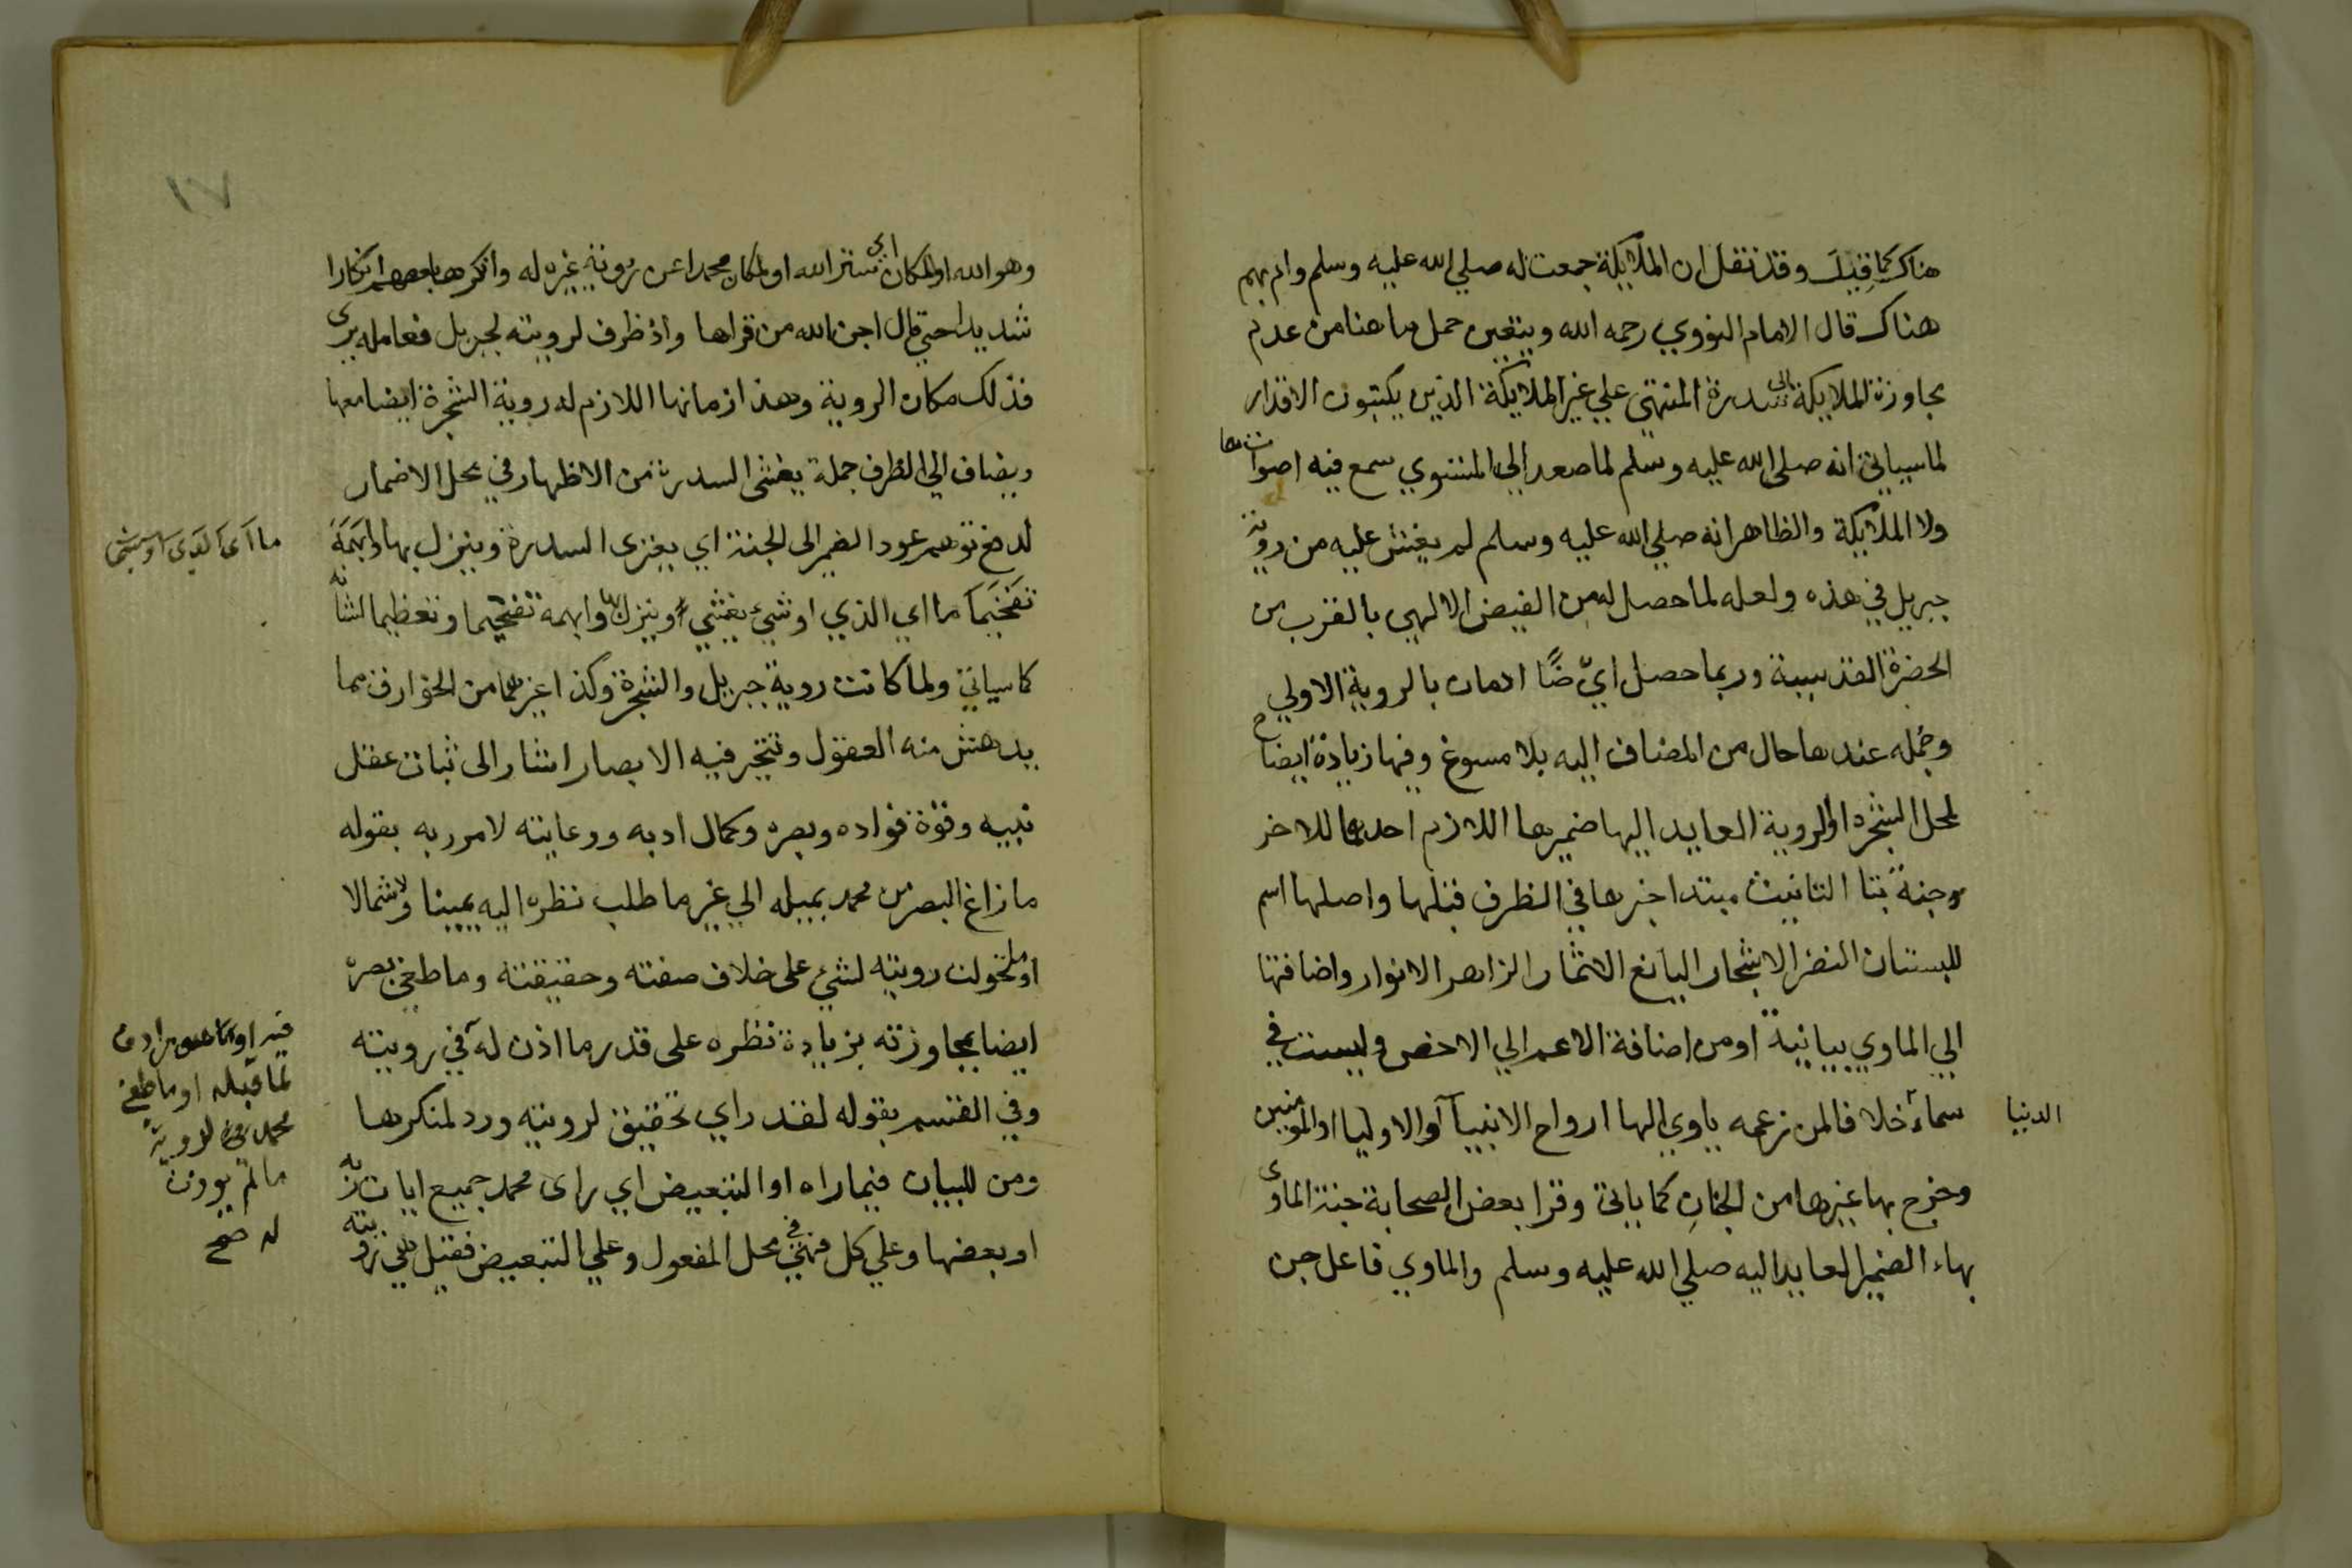 هناك كما قيل وقد نقل ان الملايكة جمعت له صلي الله عليه وسلم وام بهم
هناك قال الامام النووي رحمه الله ويتعين حمل ما هنا من عدم
مجاوزة الملايكة الى سدرة المنتهي علي غير الملايكة الذين يكتبون الاقدار
لما سياتي انه صلي الله عليه وسلم لما صعد الي المستوي سمع فيه اصواتها
ولا الملايكة والظاهر انه صلي الله عليه وسلم لم يغش عليه من روية
جبريل في هذه ولعله لما حصل له من الفيض الالهي بالقرب من
الحضرة القدسية وربما حصل ايضًا ادمان بالروية الاولي
وجمله عندها حال من المضاف اليه بلا مسوغ وفيها زيادة ايضاح
لمحل الشجره او الروية العايد اليها ضميرها اللازم احدهما للاخر
وجنة بتا التانيث مبتدا خبرها في الظرف قبلها واصلها اسم
للبستان النضر الاشجار اليانع الاثمار الزاهر الانوار واضافتها
الي الماوي بيانية او من اضافة الاعم الي الاخص وليست في
سماء خلافا لمن زعمه ياوي اليها ارواح الانبيآ والاوليا او المومنين
الدنيا
وخرج بها غيرها من الجنان كما ياتي وقرا بعض الصحابة جنة الماوى
بهاء الضمير العايد اليه صلي الله عليه وسلم والماوي فاعل جن
١٧
وهو الله او المكان اى ستر الله او المكان محمدا عن روية غيره له وانكرها بعضهم انكارا
شديدا حتي قال اجن الله من قراها واذ ظرف لرويته لجبريل فعامله يرى
فذلك مكان الروية وهذا زمانها اللازم له روية الشجرة ايضا معها
ويضاف الي الظرف جملة يغشى السدرة من الاظهار في محل الاضمار
لدفع توهم عود الضمير الى الجنة اي يعترى السدرة وينزل بها وابهمه
ما اى الذى او شي
تفخيما ما اي الذي او شيء يغشي وينزل بها وابهمه تفخيما وتعظيما لشانه
كما سياتي ولما كانت روية جبريل والشجرة وكذا غيرهما من الخوارق مما
يدهش منه العقول وتتحير فيه الابصار اشار الى ثبات عقل
نبيه وقوة فواده وبصره وكمال ادبه ورعايته لامر ربه بقوله
ما زاغ البصر من محمد بميله الي غير ما طلب نظره اليه يمينا ولا شمالا
او ما تحولت رويته لشيء على خلاف صفته وحقيقته وما طغي بصره
ايضا بمجاوزته بزيادة نظره على قدر ما اذن له في رويته
وفي القسم بقوله لقد راي تحقيق لرويته ورد لمنكرها
ومن للبيان فيما راه او التبعيض اي راى محمد جميع ايات ربه
او بعضها وعلي كل فهي في محل المفعول وعلي التبعيض فقيل هي رويته
مرادف
لما قبله او ما طغي
محمد لروية
ما لم يوذن
له صح